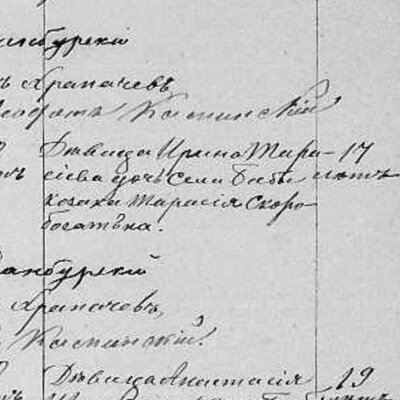 инбурскій
ъ Храпачевъ
Іософатъ Кастинскій
Дѣвица Ирина Тара- 17
сіева дочь села Бабы лѣтъ
козака Тарасія Скоро-
богатька.
анбурскій
Храпачевъ,
Кастинскій.
Дѣвица Анастасія 19